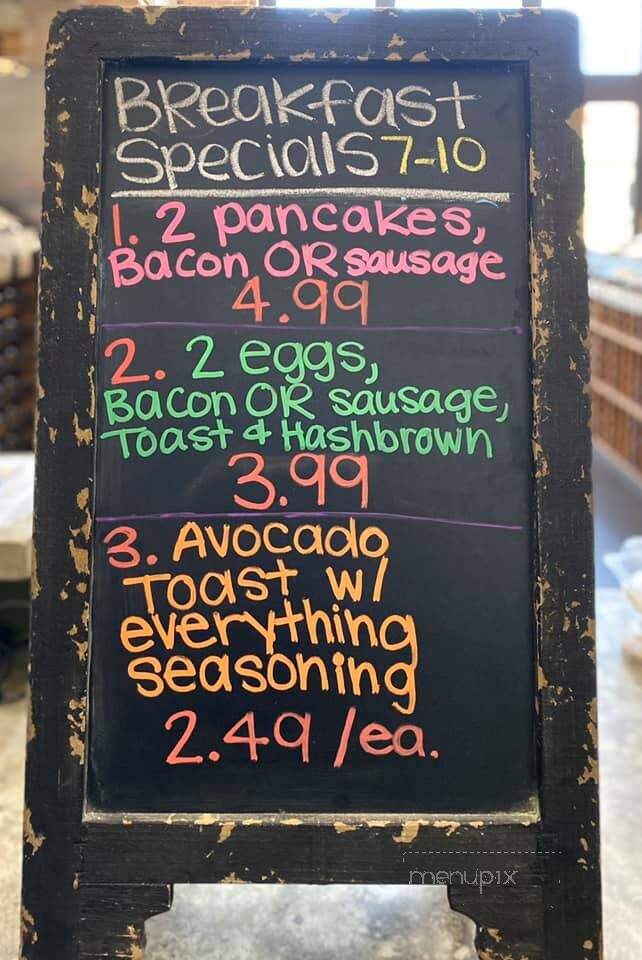 Breakfast
Specials 7-10
1. 2 pancakes,
Bacon OR sausage
4.99
2. 2 eggs,
Bacon OR sausage,
Toast & Hashbrown
3.99
3. Avocado
Toast w/
everything
seasoning
2.49 /ea.
menupix